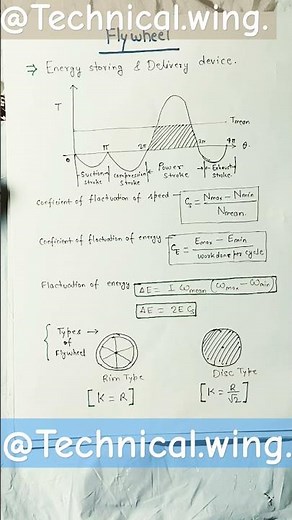 @Technical.wing.
Flywheel
⇒ Energy storing & Delivery device.
T
Tmean
0 π 2π 3π 4π θ.
Suction stroke
Compression stroke
Power Stroke
Exhaust stroke
Coefficient of flactuation of speed → Cs = Nmax − Nmin / Nmean.
Coefficient of fluctuation of energy → CE = Emax − Emin / workdone per cycle
Flactuation of energy ΔE = I ωmean (ωmax − ωmin)
ΔE = 2E Cs
Types of Flywheel →
Rim Type
Disc Type
[K = R]
[K = R/√2]
@Technical.wing.